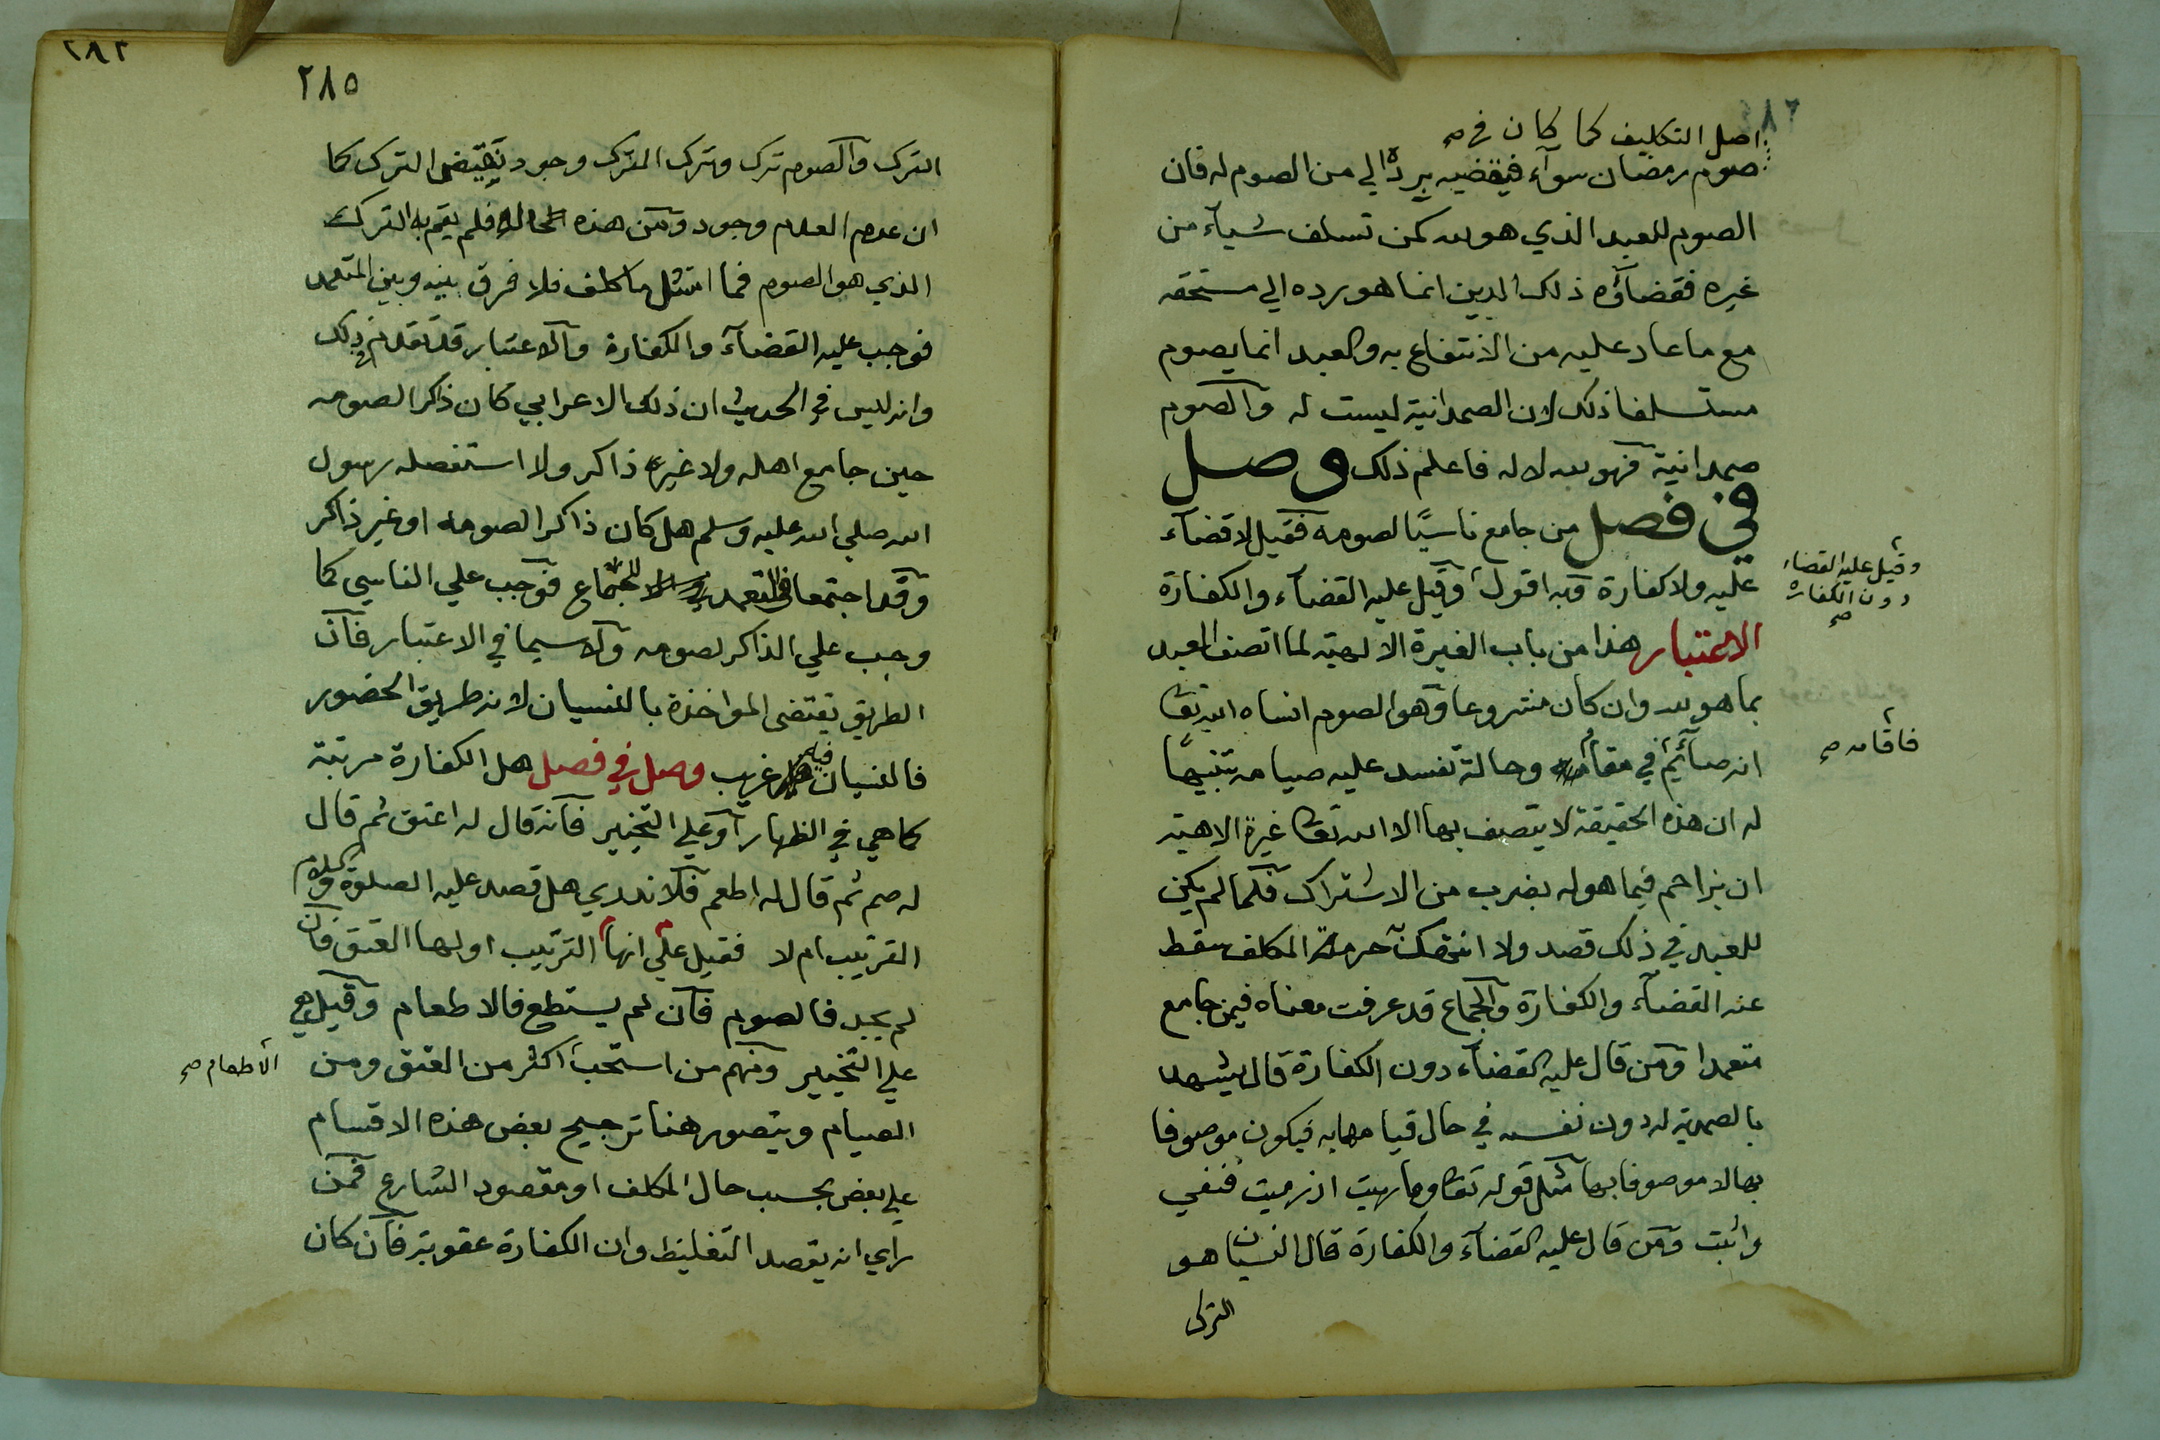 اصل التكليف كما كان في صح
صوم رمضان سوآء فيقضيه يرده الي من الصوم له فان
الصوم للعبد الذي هو لله كمن تسلف شياء من
غيره فقضاؤه ذلك الدين انما هو رده الي مستحقه
مع ما عاد عليه من الانتفاع به والعبد انما يصوم
مستسلفا ذلك لان الصمدانية ليست له والصوم
صمدانية فهو لله لا له فاعلم ذلك وصل
في فصل من جامع ناسيًا لصومه فقيل لا قضآء
عليه ولا كفارة وبه اقول وقيل عليه القضآء والكفارة
وقيل عليه القضاء
دون الكفارة
صح
الاعتبار هذا من باب الغيرة الالهية لما اتصف العبد
بما هو لله وان كان مشروعا وهو الصوم انساه الله تعا
انه صآئم في مقام وحالة تفسد عليه صيامه تنبيهًا
فاقامه صح
له ان هذه الحقيقة لا يتصف بها الا الله تعا غيرة الاهية
ان يزاحم فيما هو له بضرب من الاشتراك فلما لم يكن
للعبد في ذلك قصد ولا انتهك حرمة المكلف سقط
عنه القضآء والكفارة والجماع قد عرفت معناه فيمن جامع
متعمدا ومن قال عليه القضآء دون الكفارة قال يشهد
بالصمدية له دون نفسه في حال قيامها به فيكون موصوفا
بها لا موصوفا بها مثل قوله تعا وما رميت اذ رميت فنفي
واثبت ومن قال عليه القضآء والكفارة قال النسيان هو
الترك
٢٨٢
٢٨٥
الترك والصوم ترك وترك الترك وجود نقيض الترك كما
ان عدم العدم وجود ومن هذه الحالة فلم يقم به الترك
الذي هو الصوم فما امتثل ما كلف فلا فرق بينه وبين المتعمد
فوجب عليه القضآء والكفارة والاعتبار قد تقدم في ذلك
وانه ليس في الحديث ان ذلك الاعرابي كان ذاكرا لصومه
حين جامع اهله ولا غير ذاكر ولا استفصله رسول
الله صلي الله عليه وسلم هل كان ذاكرا لصومه او غير ذاكر
وقد اجتمعا في التعمد للجماع فوجب علي الناسي كما
وجب علي الذاكر لصومه ولا سيما في الاعتبار فان
الطريق تقتضي المواخذة بالنسيان لانه طريق الحضور
فالنسيان فيه غريب وصل في فصل هل الكفارة مرتبة
كما هي في الظهار او علي التخيير فانه قال له اعتق ثم قال
له صم ثم قال له اطعم فلا ندري هل قصد عليه الصلوة والسلام
الترتيب ام لا فقيل علي انها الترتيب اولها العتق فان
لم يجد فالصوم فان لم يستطع فالاطعام وقيل هي
علي التخيير ومنهم من استحب اكثر من العتق ومن
الاطعام صح
الصيام ويتصور هنا ترجيح بعض هذه الاقسام
علي بعض بحسب حال المكلف او مقصود الشارع فمن
راي انه يقصد التغليظ وان الكفارة عقوبة فان كان